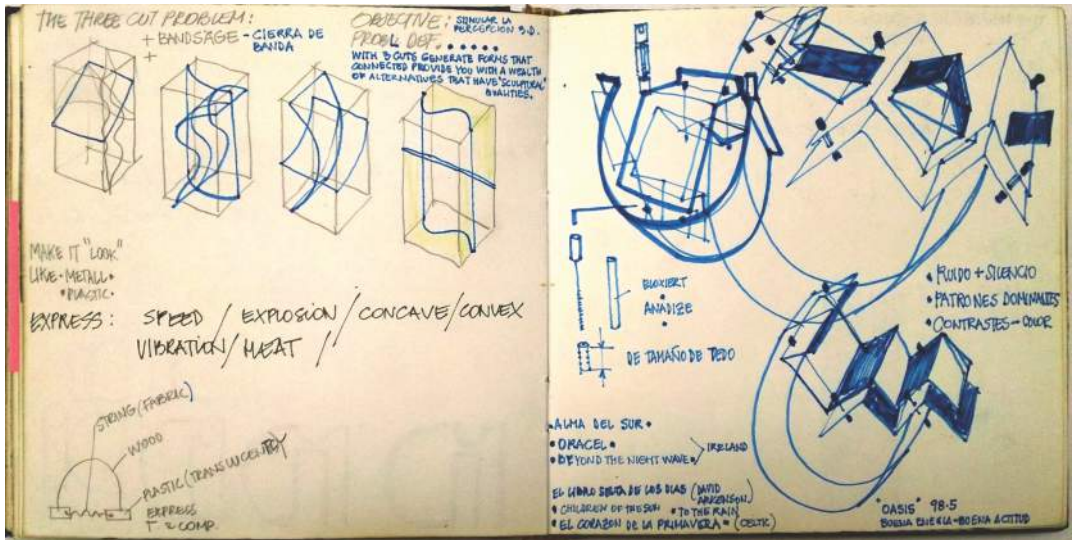 THE THREE CUT PROBLEM:
+ BANDSÄGE - CIERRA DE
BANDA
+
OBJECTIVE: SIMULAR LA
PERCEPCION 3.D.
PROBL DEF. . . . . .
WITH 3 CUTS GENERATE FORMS THAT
CONNECTED PROVIDE YOU WITH A WEALTH
OF ALTERNATIVES THAT HAVE "SCULPTURAL"
QUALITIES.
MAKE IT "LOOK"
LIKE • METALL •
• PLASTIC •
EXPRESS: SPEED / EXPLOSION / CONCAVE/CONVEX
VIBRATION / HEAT /
STRING (FABRIC)
WOOD
PLASTIC (TRANSLUCENTY)
EXPRESS
COMP.
BLOXIERT
ANADIZE
DE TAMAÑO DE TEDO
• RUIDO + SILENCIO
• PATRONES DOMINANTES
• CONTRASTES - COLOR
• ALMA DEL SUR •
• ORACEL •
• BEYOND THE NIGHT WAVE •
IRELAND
EL LIBRO DE LOS DIAS (DAVID
ARKENSON)
• CHILDREN OF THE SUN • TO THE RAIN
• EL CORAZON DE LA PRIMAVERA • (CELTIC)
"OASIS" 98.5
BUENA ENERGIA - BUENA ACTITUD